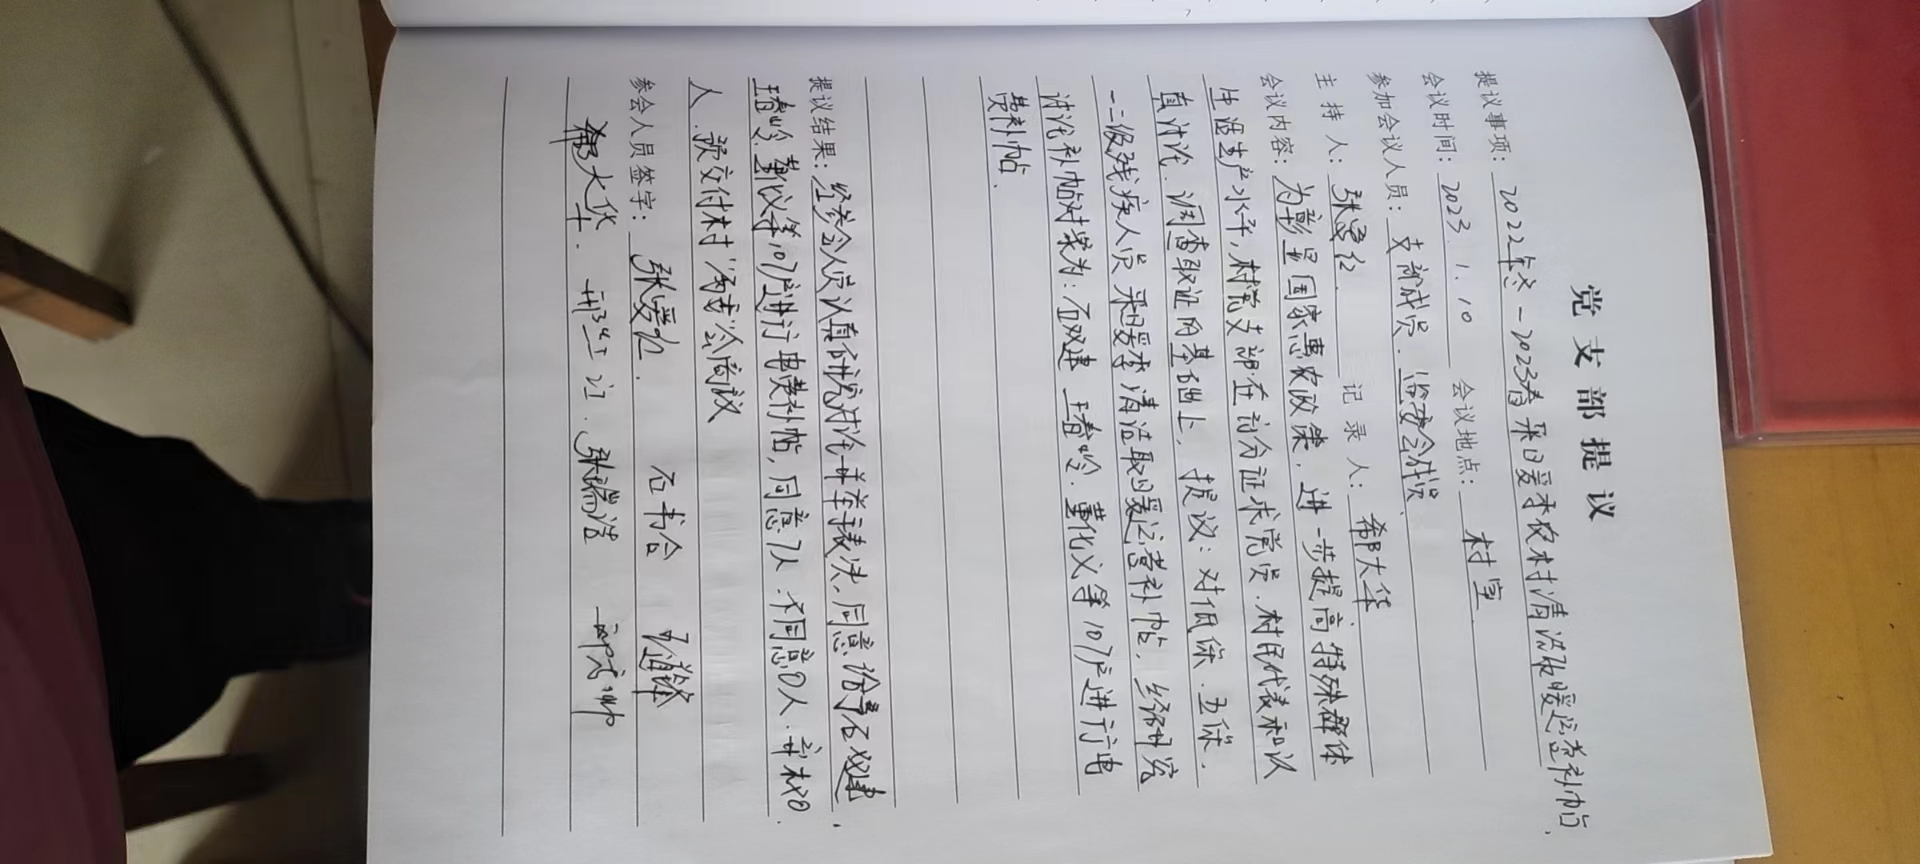 党支部提议
提议事项: 2022年冬-2023春采暖季农村清洁取暖运营补帖.
会议时间: 2023.1.10 会议地点: 村室
参加会议人员: 支部成员、监委会成员.
主持人: 张爱红. 记录人: 郗大华.
会议内容: 为彰显国家惠农政策,进一步提高特殊群体
生活生产水平,村党支部在充分证求党员、村民代表和认
真讨论、调查取证的基础上,提议:对低保、五保、
一二级残疾人员采暖季清洁取暖运营补帖,经研究
讨论补帖对象为:石双建 王春岭、董化义等107户进行电
费补帖.
提议结果: 经参会人员认真研究讨论并举手表决,同意给予石双建、
王春岭、董化义等107户进行电费补帖,同意7人、不同意0人、弃权0
人、预交付村“两委”会商议
参会人员签字: 张爱红. 石书合 王道锋
郗大华. 张瑞洁